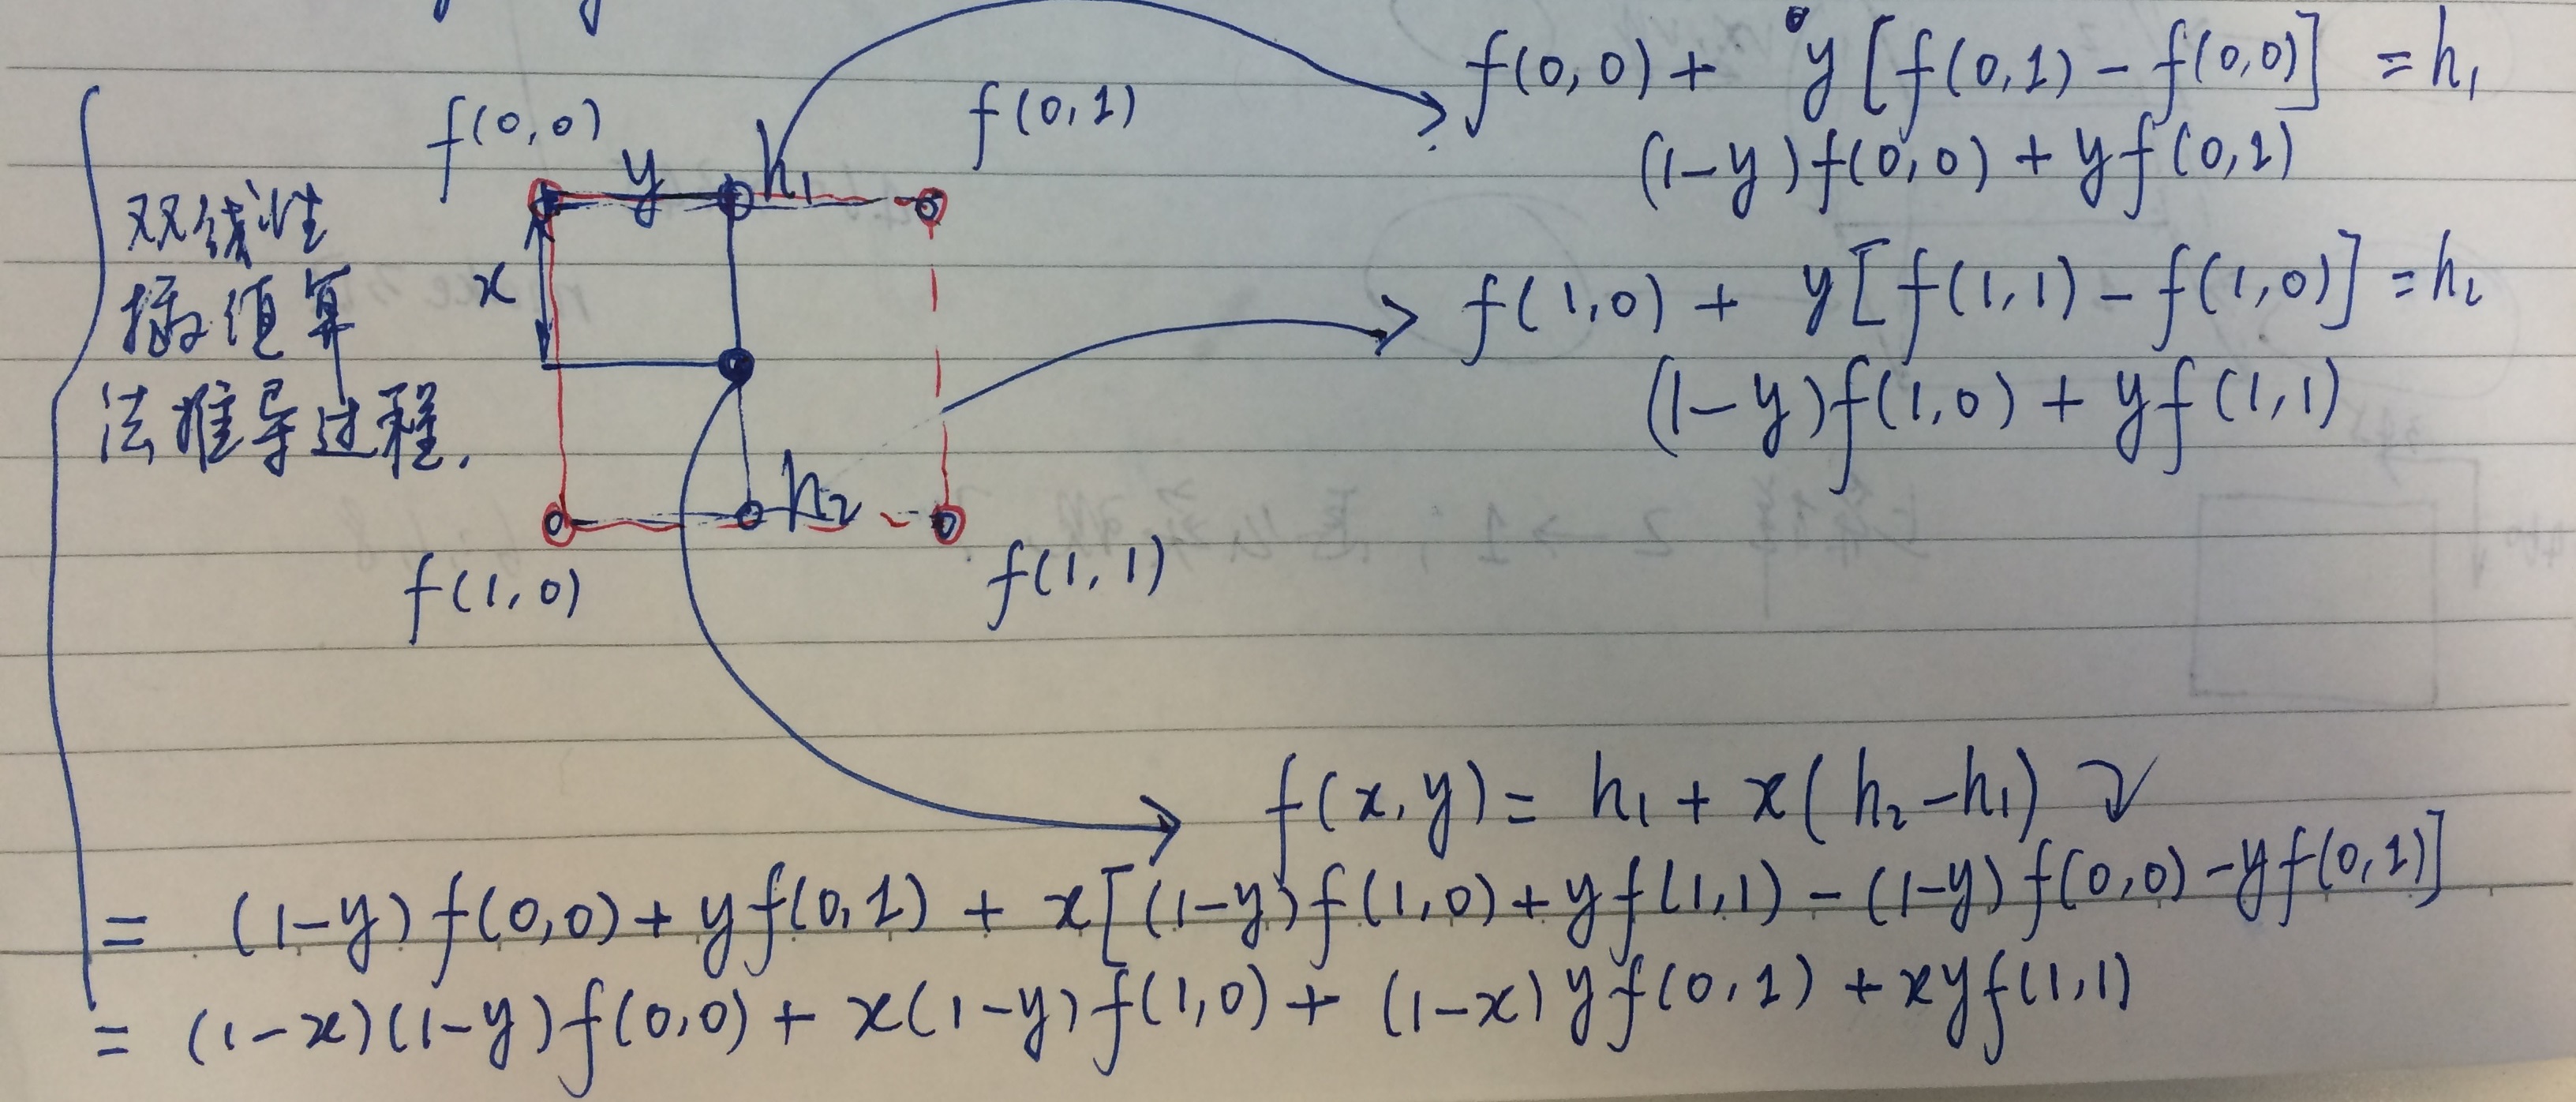 f(0,0) + y[f(0,1) - f(0,0)] = h₁
(1-y)f(0,0) + yf(0,1)
f(0,0)
y
h₁
f(0,1)
双线性
插值算
法推导过程.
x
f(1,0) + y[f(1,1) - f(1,0)] = h₂
(1-y)f(1,0) + yf(1,1)
h₂
f(1,0)
f(1,1)
f(x,y) = h₁ + x(h₂-h₁)
= (1-y)f(0,0) + yf(0,1) + x[(1-y)f(1,0) + yf(1,1) - (1-y)f(0,0) - yf(0,1)]
= (1-x)(1-y)f(0,0) + x(1-y)f(1,0) + (1-x)yf(0,1) + xyf(1,1)